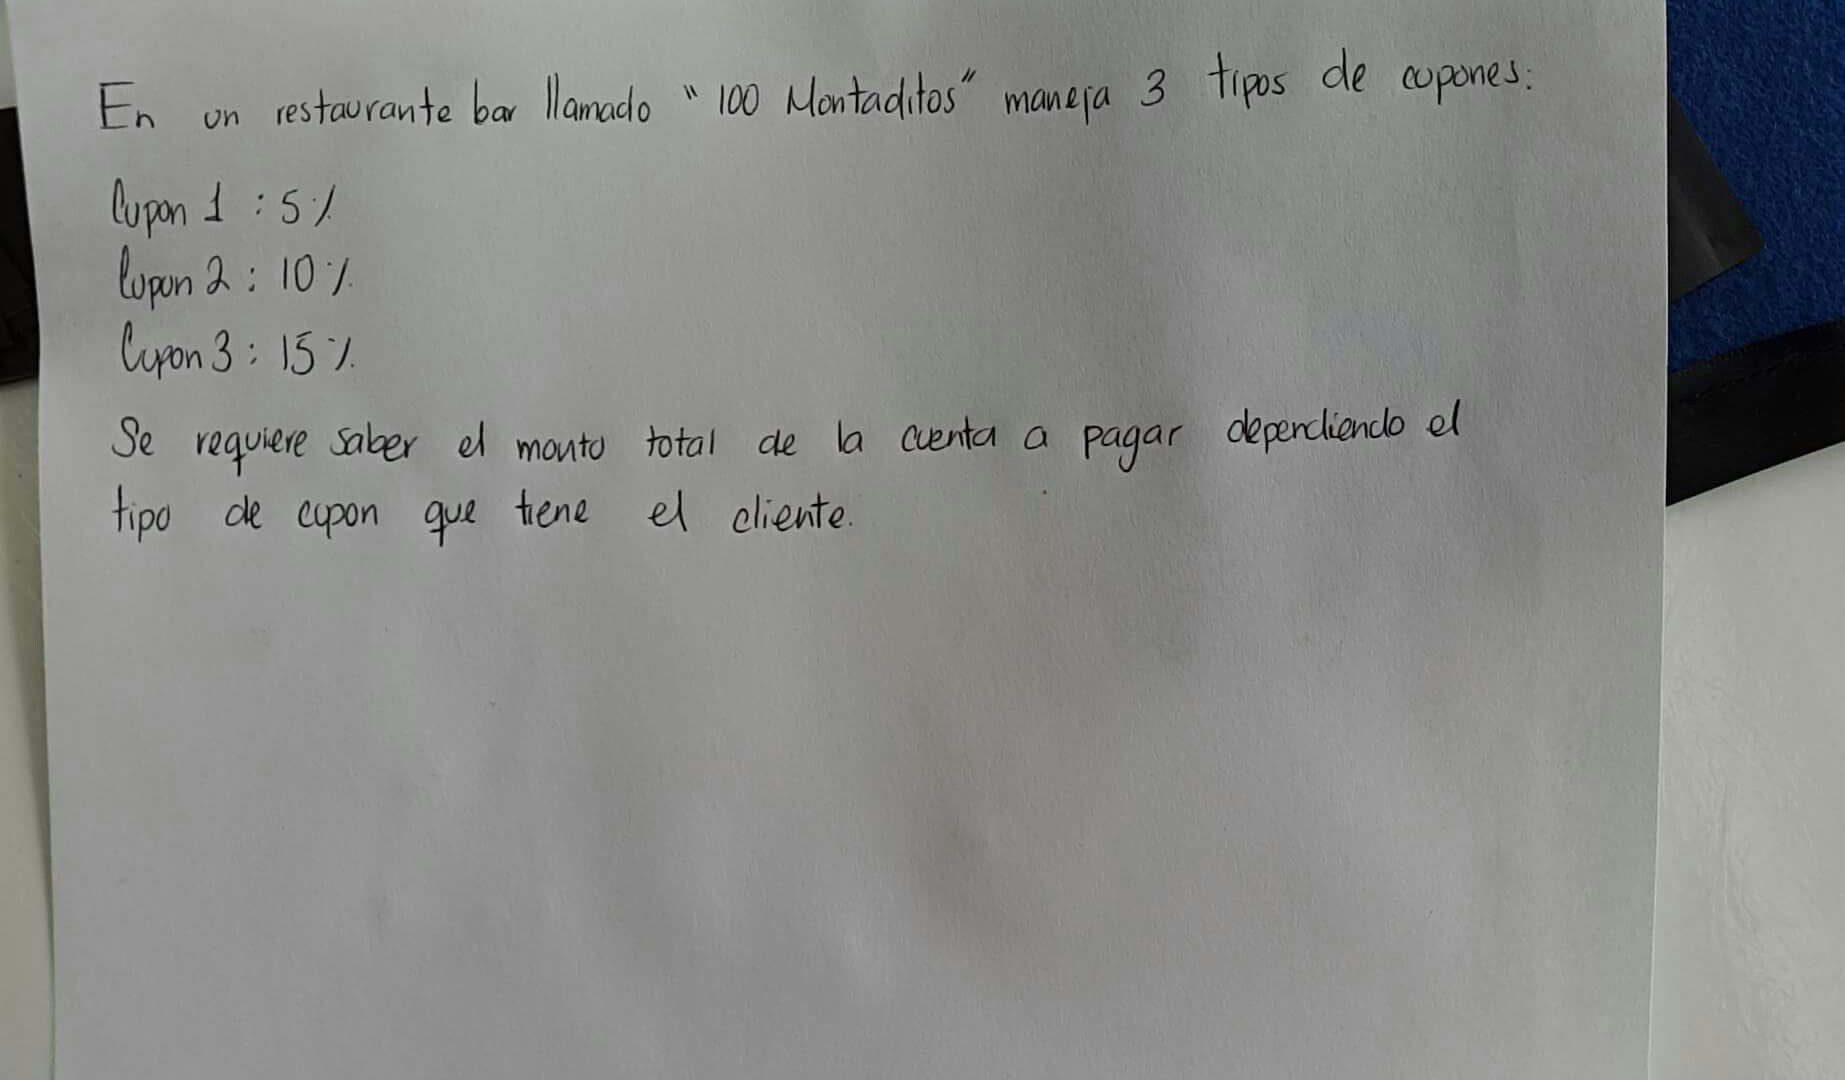 En un restaurante bar llamado "100 Montaditos" maneja 3 tipos de cupones:
Cupon 1 : 5%
Cupon 2 : 10%
Cupon 3 : 15%
Se requiere saber el monto total de la cuenta a pagar dependiendo el
tipo de cupon que tiene el cliente.